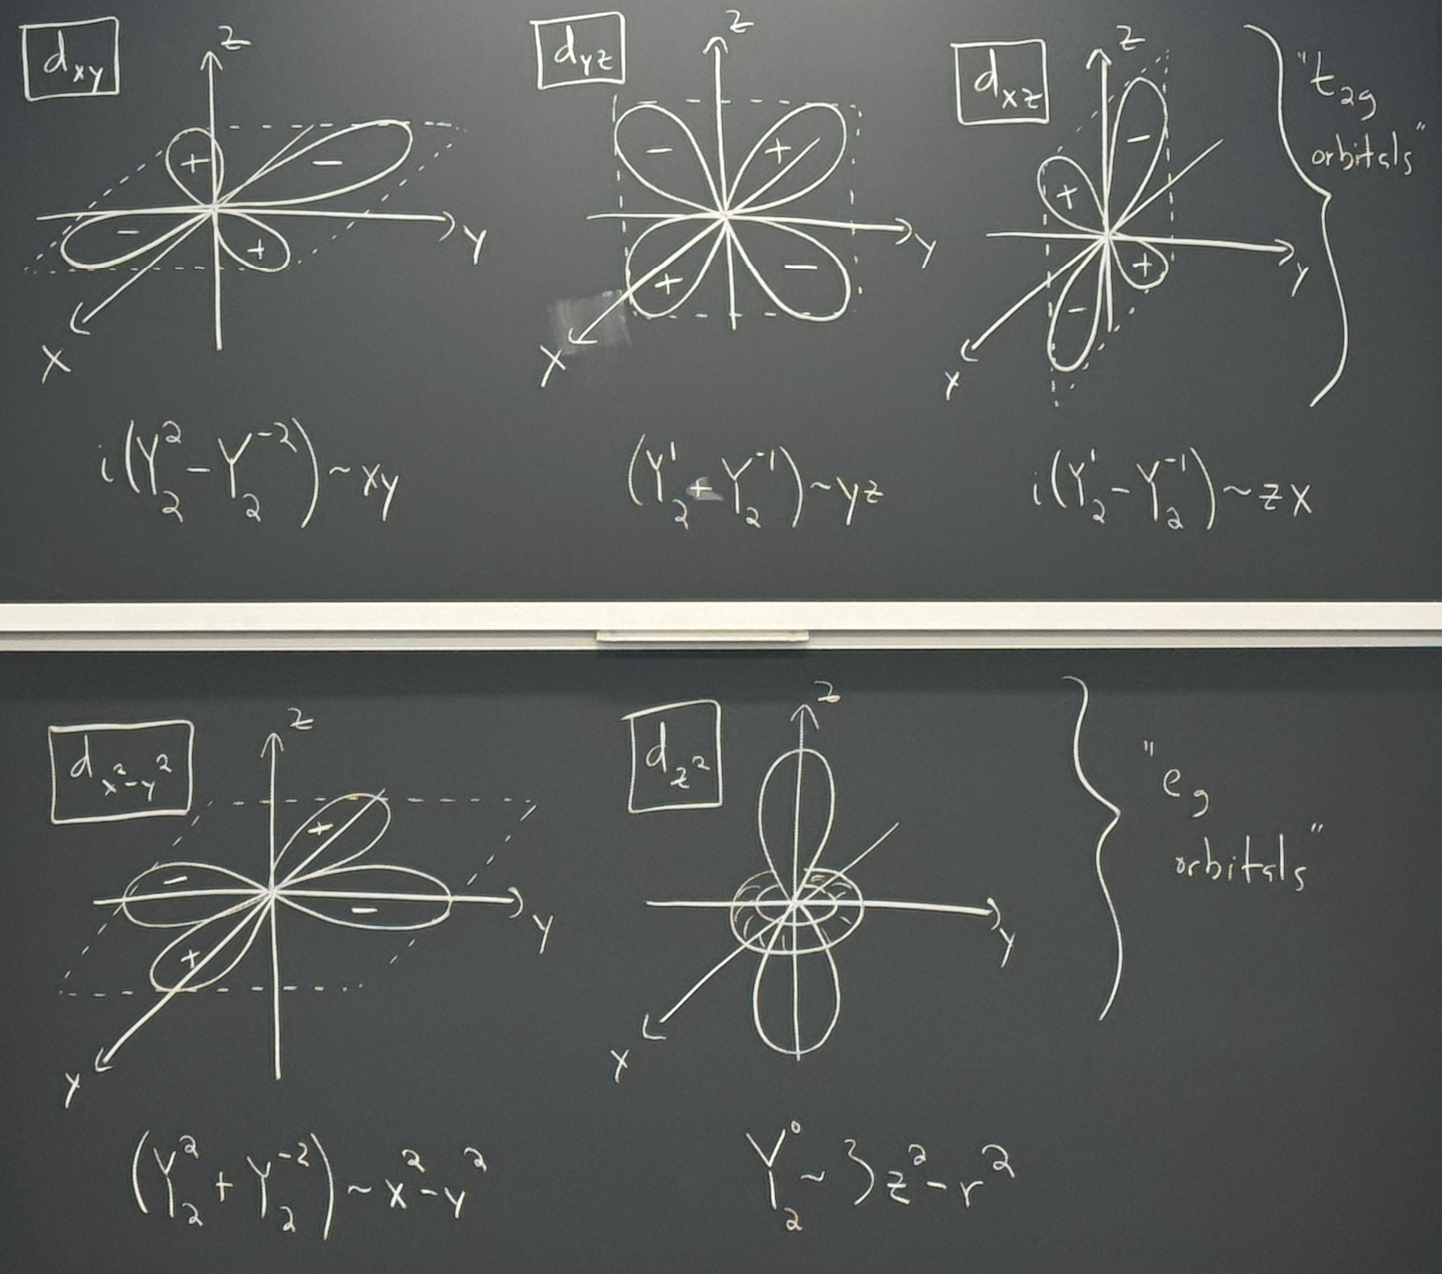 d_xy
z
+
−
−
+
y
x
i(Y_2^2 − Y_2^{-2}) ~ xy
d_yz
z
−
+
+
−
y
x
(Y_2^1 + Y_2^{-1}) ~ yz
d_xz
z
−
+
+
−
y
x
i(Y_2^1 − Y_2^{-1}) ~ zx
"t_2g
orbitals"
d_{x^2−y^2}
z
+
−
−
+
y
x
(Y_2^2 + Y_2^{-2}) ~ x^2−y^2
d_{z^2}
z
y
x
Y_2^0 ~ 3z^2−r^2
"e_g
orbitals"